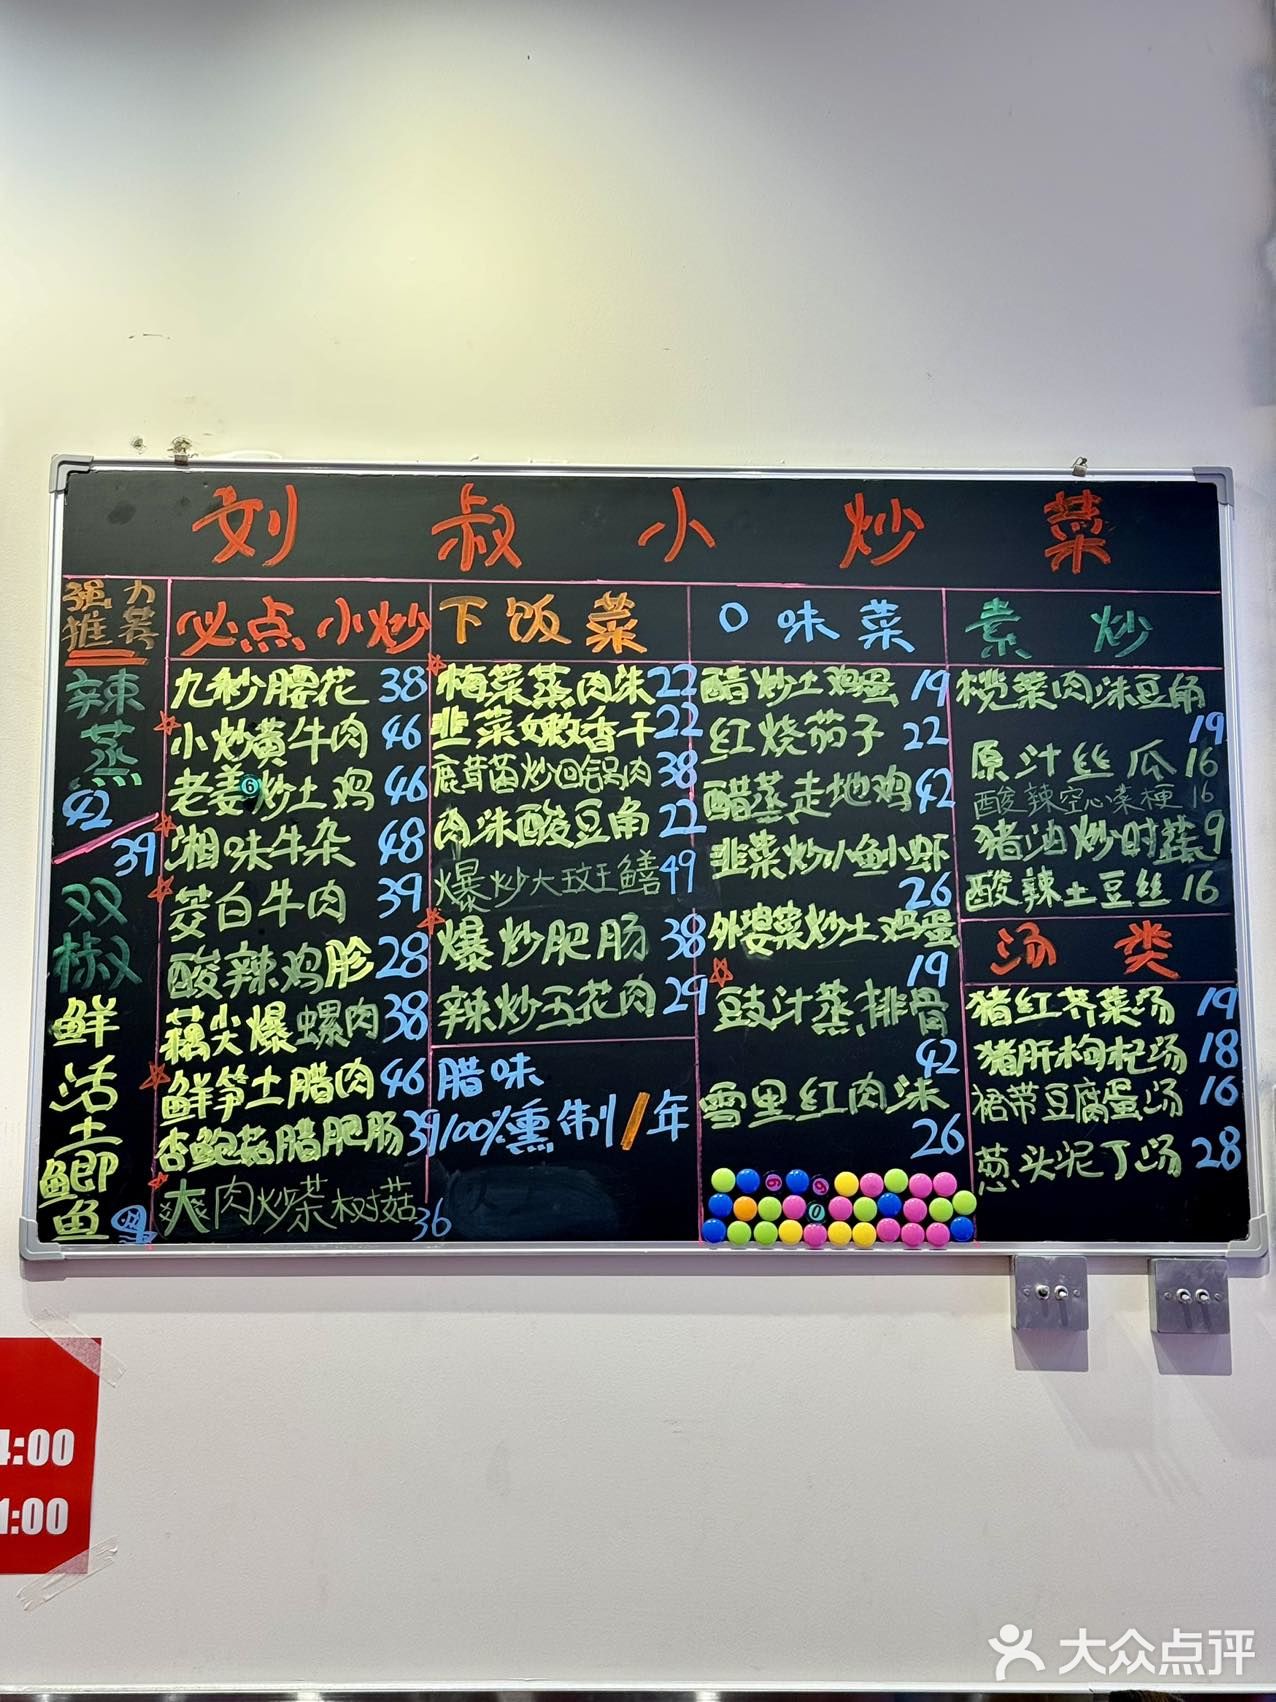 刘叔小炒菜
强力
推荐
辣
蒸
42
39
双
椒
鲜
活
土
鲫
鱼
必点小炒
九秒腰花 38
小炒黄牛肉 46
老姜炒土鸡 46
湘味牛杂 48
茭白牛肉 39
酸辣鸡胗 28
藕尖爆螺肉 38
鲜笋土腊肉 46
杏鲍菇腊肥肠 39
爽肉炒茶树菇 36
下饭菜
梅菜蒸肉沫 22
韭菜嫩香干 22
鹿茸菌炒回锅肉 38
肉沫酸豆角 22
爆炒大斑鳝 49
爆炒肥肠 38
辣炒五花肉 29
腊味
100%熏制1年
口味菜
醋炒土鸡蛋 19
红烧茄子 22
醋蒸走地鸡 42
韭菜炒小鱼小虾
26
外婆菜炒土鸡蛋
19
豉汁蒸排骨
42
雪里红肉沫
26
素炒
榄菜肉沫豆角
19
原汁丝瓜 16
酸辣空心菜梗 16
猪油炒时蔬 9
酸辣土豆丝 16
汤类
猪红芥菜汤 19
猪肝枸杞汤 18
裙带豆腐蛋汤 16
葱头泥丁汤 28
4:00
1:00
大众点评